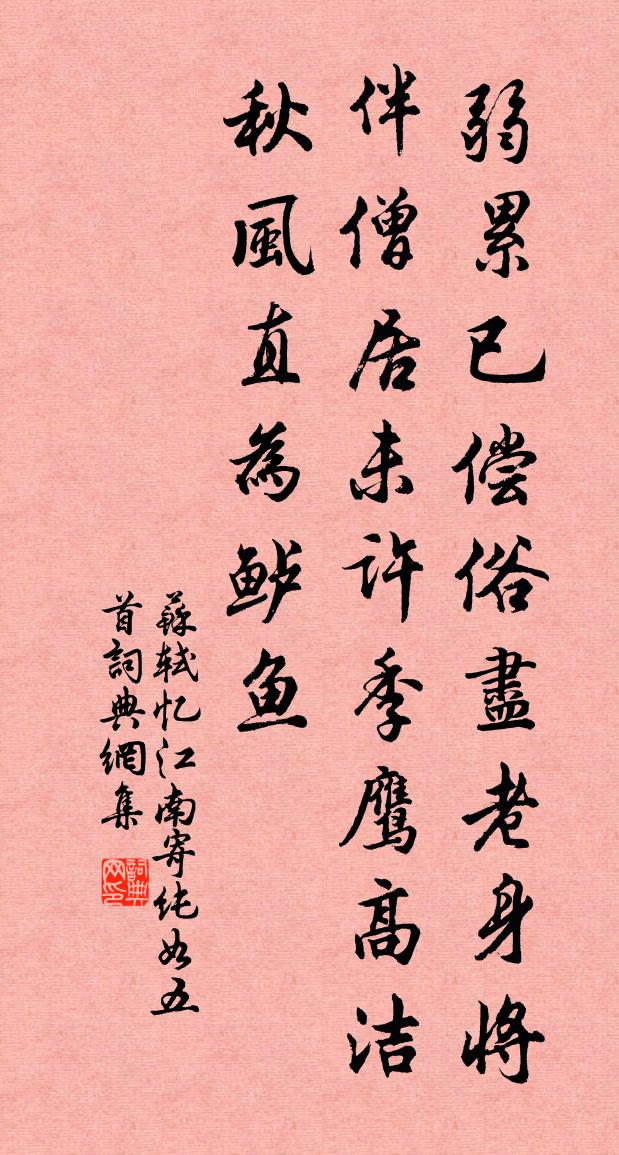 弱累已偿俗盡老身将
伴僧居未许季鹰高洁
秋風直為鲈鱼
蘇轼忆江南寄纯如五
首詞典網集
詞典
网印